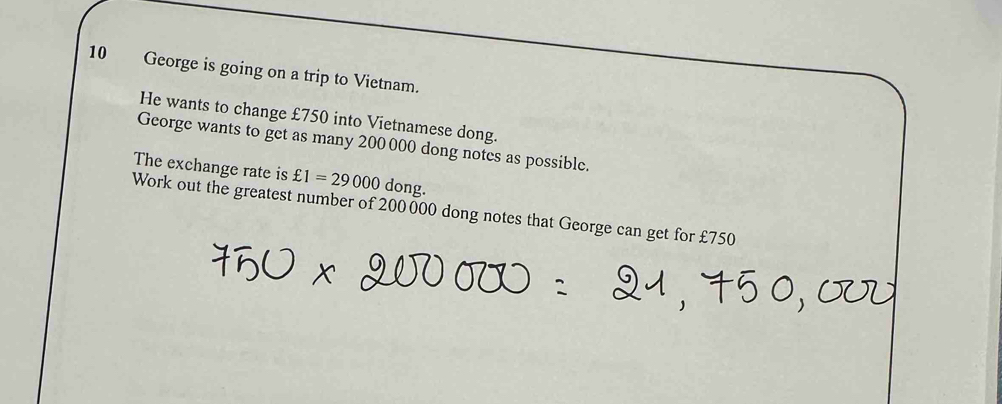 10 George is going on a trip to Vietnam.
He wants to change £750 into Vietnamese dong.
George wants to get as many 200 000 dong notes as possible.
The exchange rate is £1 = 29 000 dong.
Work out the greatest number of 200 000 dong notes that George can get for £750
750 x 200 000 = 21,750,000